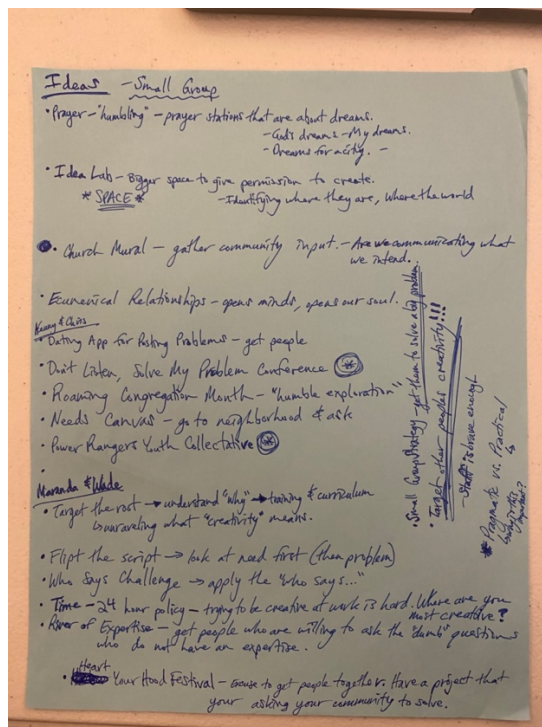 Ideas - Small Group
• Prayer - "humbling" - prayer stations that are about dreams.
- God's dreams - My dreams.
- Dreams for a city. -
• Idea Lab - Bigger space to give permission to create.
* SPACE *
- Identifying where they are, where the world
• Church Mural - gather community input. - Are we communicating what
we intend.
• Ecumenical Relationships - opens minds, opens our soul.
& Chris
• Dating App for Posting Problems - get people
• Don't Listen, Solve My Problem Conference
• Roaming Congregation Month - "humble exploration"
• Needs Canvas - go to neighborhood & ask
• Power Rangers Youth Collectative
Maranda & Wade
• Target the root → understand "why" → training & curriculum
↳ unraveling what "creativity" means.
• Flipt the script → look at need first (then problem)
• Who Says Challenge → apply the "who says..."
• Time - 24 hour policy - trying to be creative at work is hard. Where are you
most creative?
• River of Expertise - get people who are willing to ask the "dumb" questions
who do not have an expertise.
• Heart Your Hood Festival - Excuse to get people together. Have a project that
your asking your community to solve.
• Small Group Strategy - get them to solve a big problem
• Target other people's creativity!!!
- Staff is brave enough
* Pragmatic vs. Practical
↳ why is this
important?